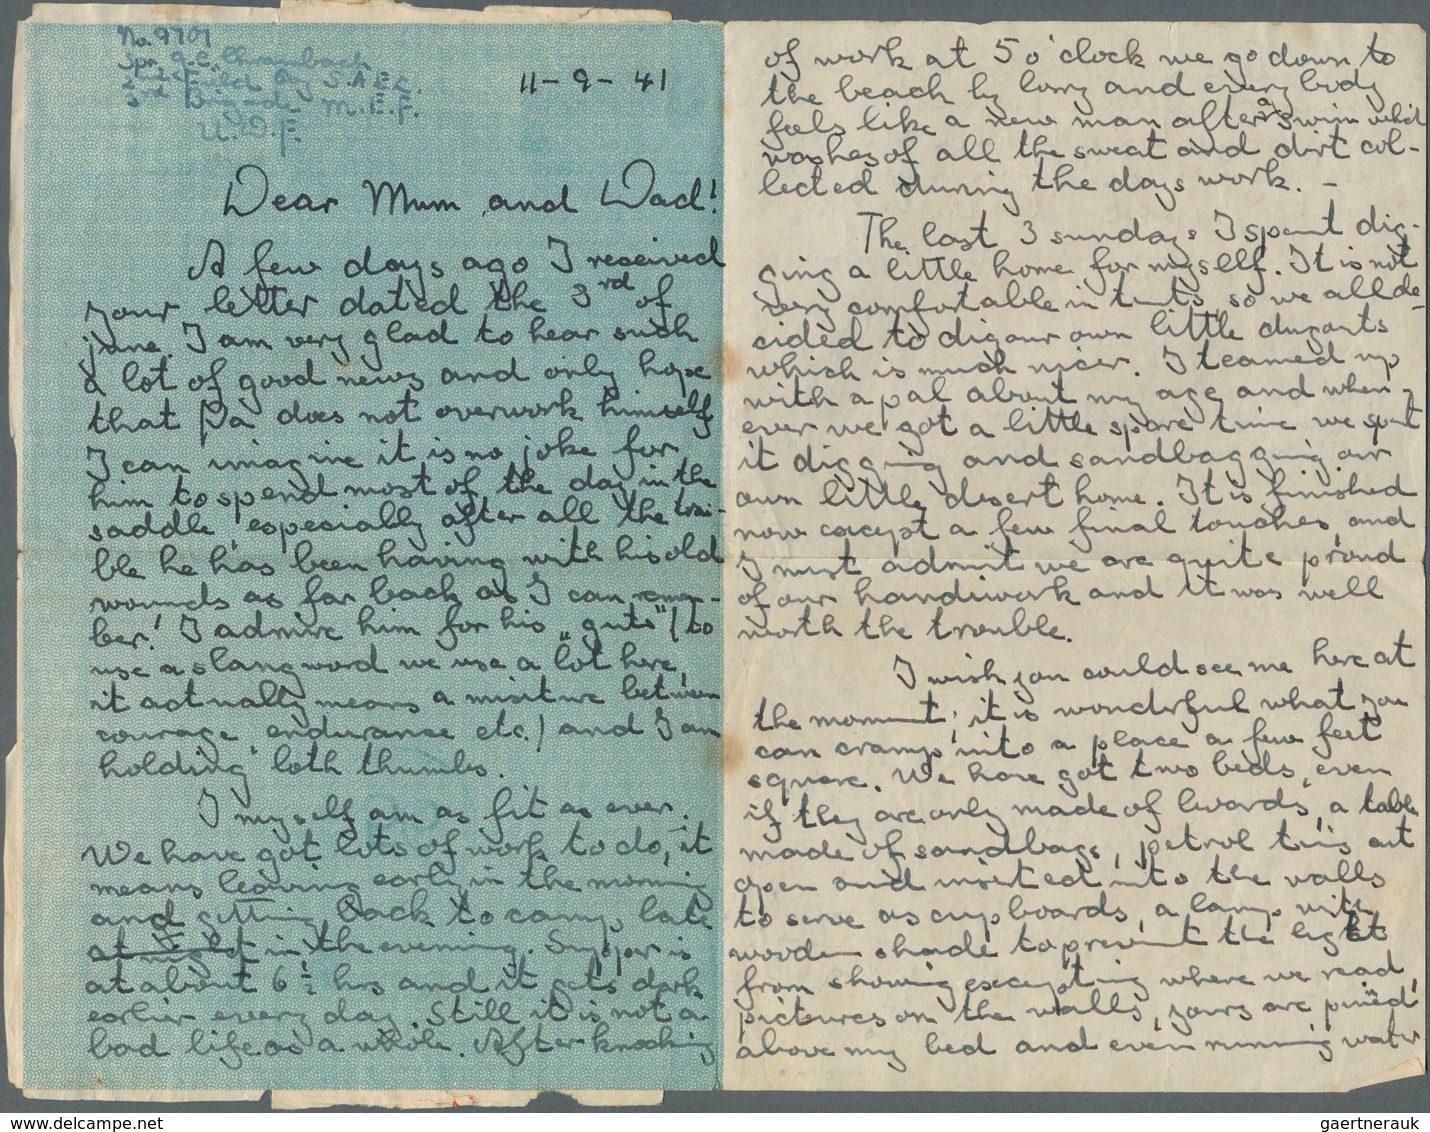 No. 9707
Spr. G. C.
2nd Field Coy S.A.E.C.
3rd Brigade M.E.F.
U.D.F.
11-9-41
Dear Mum and Dad!
A few days ago I received
your letter dated the 3rd of
june. I am very glad to hear such
a lot of good news and only hope
that Pa does not overwork himself
I can imagine it is no joke for
him to spend most of the day in the
saddle, especially after all the trou-
ble he has been having with his old
wounds as far back as I can remem-
ber! I admire him for his „guts" (to
use a slang word we use a lot here,
it actually means a mixture between
courage, endurance etc.) and I am
holding both thumbs.
I myself am as fit as ever.
We have got lots of work to do, it
means leaving early in the morning
and getting back to camp late
at night in the evening. Supper is
at about 6½ hrs and it gets dark
earlier every day. Still it is not a
bad life as a whole. After knocking
of work at 5 o'clock we go down to
the beach by lorry and every body
feels like a new man after a swim which
washes of all the sweat and dirt col-
lected during the days work. -
The last 3 sundays I spent dig-
ging a little home for myself. It is not
very comfortable in tents, so we all de-
cided to dig our own little dugouts
which is much nicer. I teamed up
with a pal about my age and when
ever we got a little spare time we spent
it digging and sandbagging our
own little desert home. It is finished
now except a few final touches, and
I must admit we are quite proud
of our handiwork and it was well
worth the trouble.
I wish you could see me here at
the moment; it is wonderful what you
can cramp into a place a few feet
square. We have got two beds, even
if they are only made of boards, a table
made of sandbags, petrol tins cut
open and inserted into the walls
to serve as cupboards, a lamp with
wooden shade to prevent the light
from showing excepting where we read,
pictures on the walls, yours are pinned
above my bed and even running water
www.delcampe.net
gaertnerauk